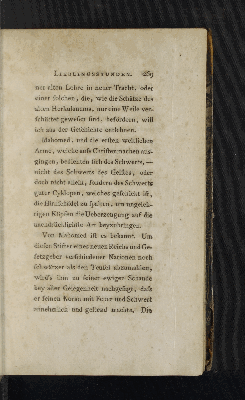 LIEBLINGSSTUNDEN.
ner alten Lehre in neuer Tracht, oder
einer solchen, die, wie die Schätze des
alten Herkulanums, nur eine Weile ver-
schüttet gewesen sind, befördern, will
ich aus der Geschichte erlehren.
Mahomed, und die ersten weltlichen
Arme, welche aufs Christen machen aus-
gingen, bedienten sich des Schwerts, —
nicht des Schwerts des Geistes, oder
doch nicht allein, sondern des Schwerts
guter Cyklopen, welches geschickt ist,
die Hirnschädel zu spalten, um ungeleh-
rigen Köpfen die Ueberzeugung auf die
nachdrücklichste Art beyzubringen.
Von Mahomed ist es bekannt. Um
diesen Stifter eines neuen Reichs und Ge-
setzgeber verschiedener Nazionen noch
schwärzer als den Teufel abzumahlen,
wird's ihm zu seiner ewigen Schande
bey aller Gelegenheit nachgesagt, dass
er seinen Koran mit Feuer und Schwert
annehmlich und geltend machte. Die